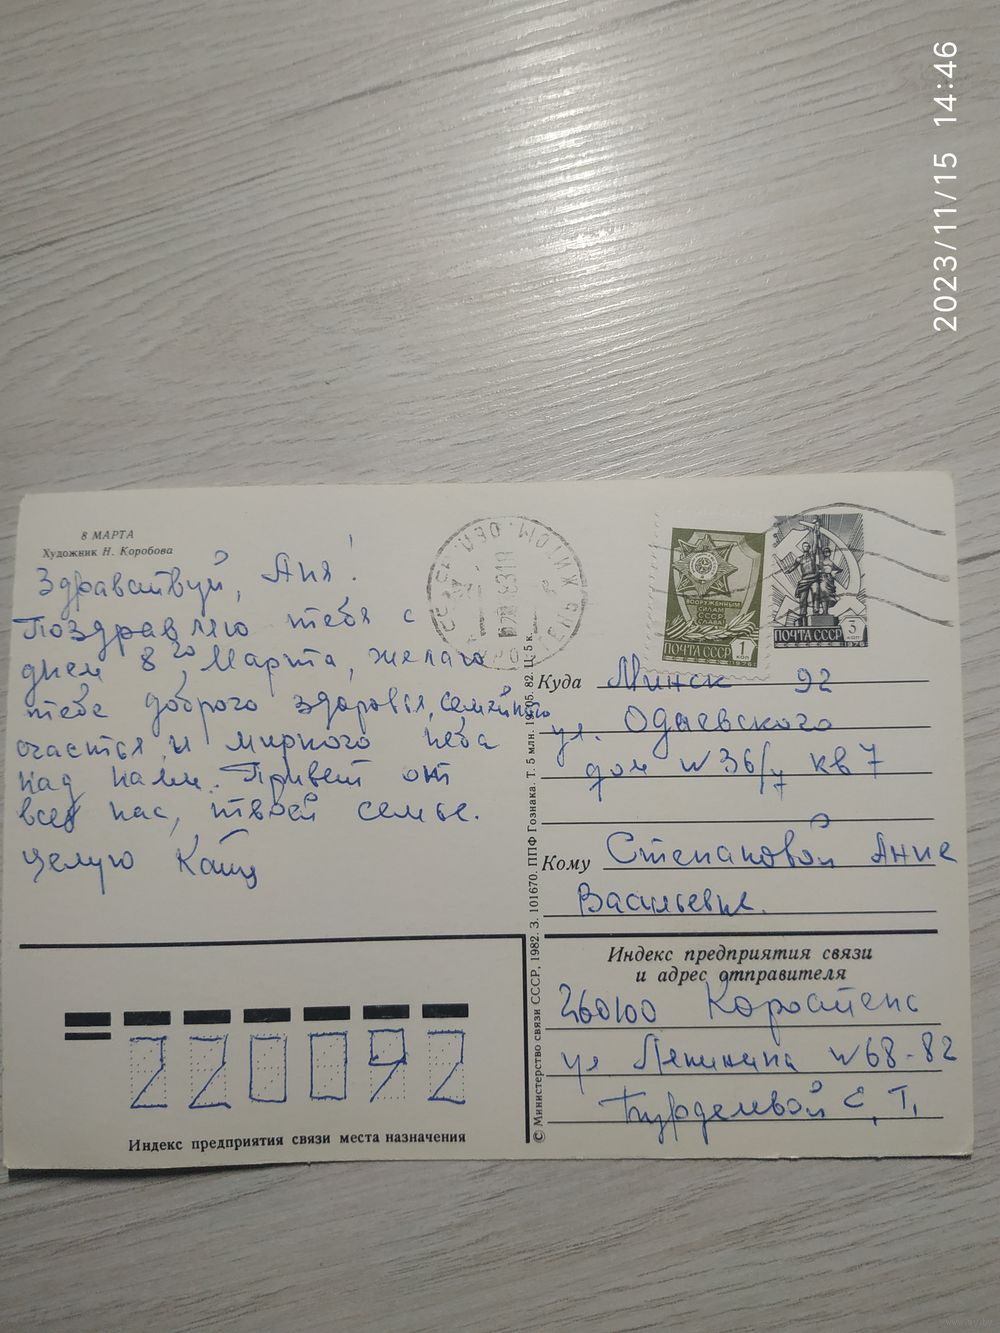 2023/11/15 14:46
8 МАРТА
Художник Н. Коробова
Здравствуй, Аня!
Поздравляю тебя с
днем 8го Марта, желаю
тебе доброго здоровья, семейного
счастья и мирного неба
над нами. Привет от
всех нас, твоей семье.
Целую Катя
ВООРУЖЕННЫМ
СИЛАМ
СССР
СЛАВА!
ПОЧТА СССР 1 КОП
1976
ПОЧТА СССР 3 КОП
1976
Куда Минск 92
ул. Одоевского
дом N 36/7 кв 7
Кому Степановой Анне
Васильевне.
Индекс предприятия связи
и адрес отправителя
260100 Коростень
ул Ленина N 68-82
Е. Т.
© Министерство связи СССР, 1982. З. 101670. ППФ Гознака. Т. 5 млн. 19.05.82. Ц. 5 к.
220092
Индекс предприятия связи места назначения
www.ay.by